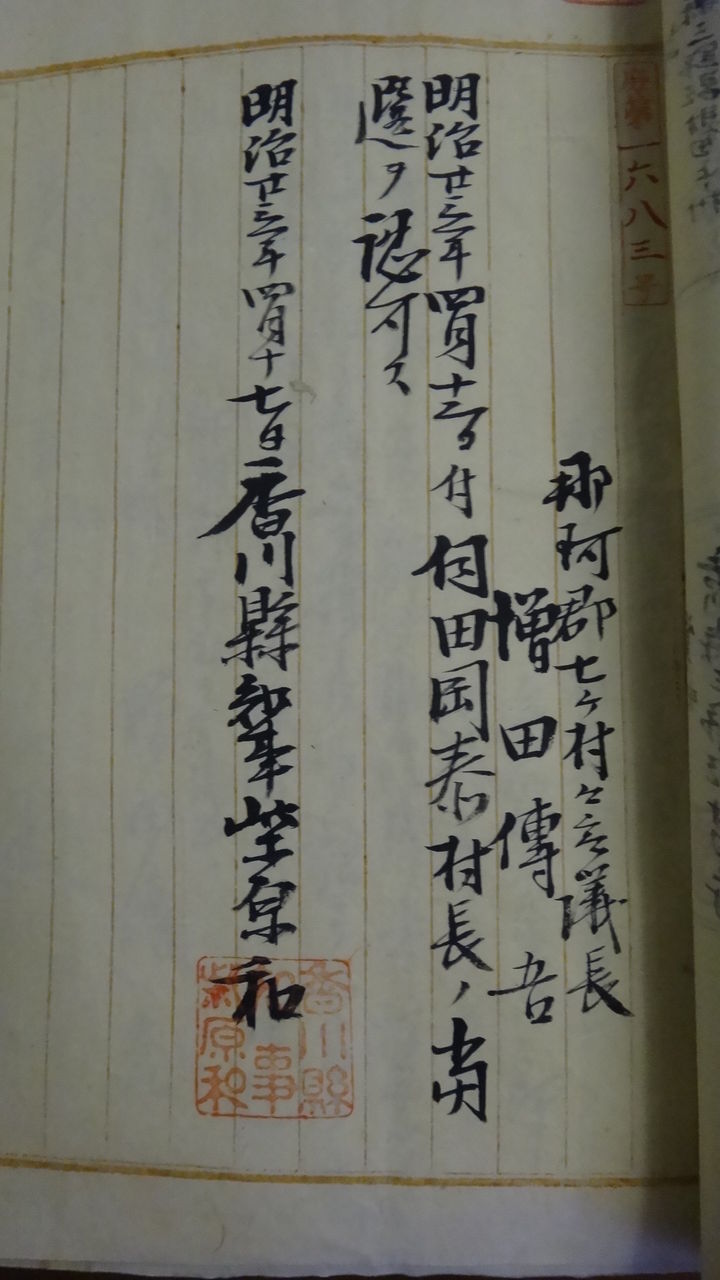 第一六八三号
那珂郡七ヶ村々会議長
増田傳吾
明治廿三年四月十二日付伺田岡泰村長ノ当
選ヲ認可ス
明治廿三年四月十七日香川縣知事柴原和
香川縣
知事
柴原和